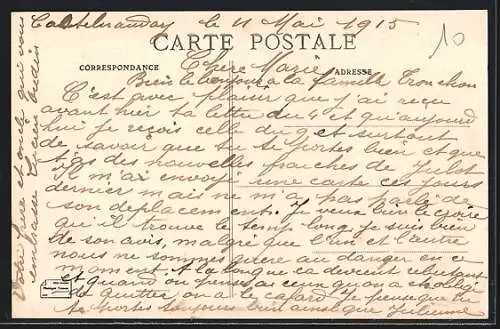 Castelnaudary le 11 Mai 1915
CARTE POSTALE
10
Chère Marie
CORRESPONDANCE
ADRESSE
Bien le bonjour à la famille Tronchon
C'est avec plaisir que j'ai reçu
avant hier ta lettre du 4 et qu'aujourd
hui je reçois celle du 9 et surtout
de savoir que tu te portes bien et que
tu as des nouvelles fraiches de Julot
Il m'ai envoyé une carte ces jours
dernier mais ne m'a pas parlé de
son deplacement. Je veux bien le croire
qu'il trouve le temps long je suis bien
de son avis, malgré que l'un et l'autre
nous ne sommes guère au danger en ce
moment. A la longue ca devient
et quand on pense à ceux qu'on a été obligé
de quitter, on a le cafard. Je pense que tu
te portes toujours bien ainsi que Julienne
Votre père et oncle qui vous
embrasse